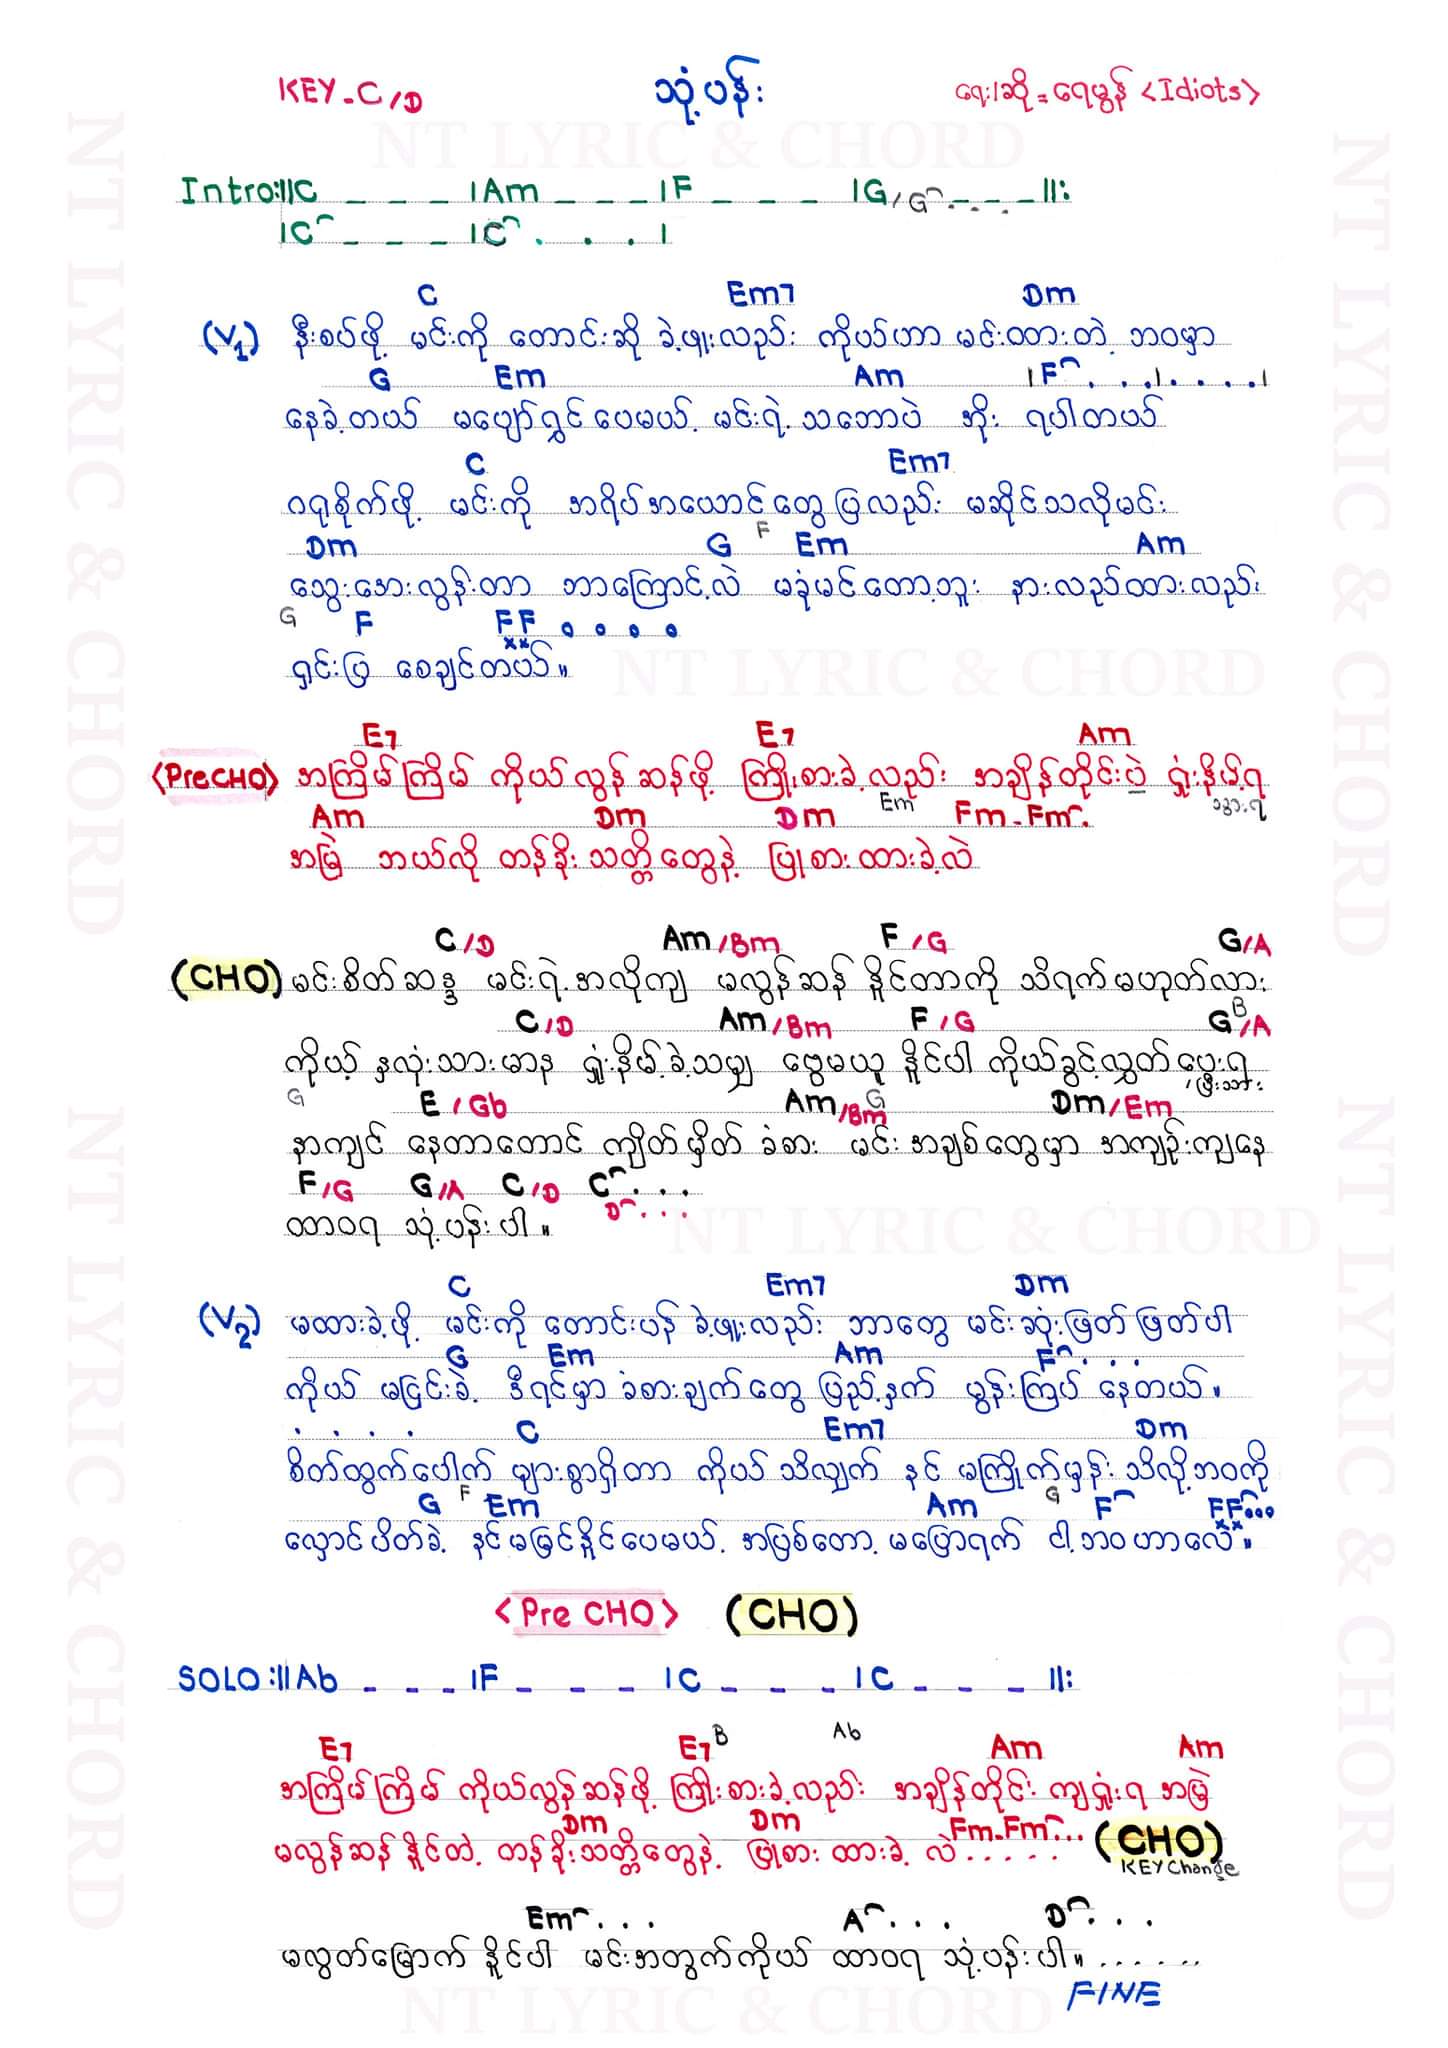 KEY-C/D
သုံ့ပန်း
ရေး/ဆို = ရေမွန် <Idiots>
Intro:||C _ _ _ |Am _ _ _ |F _ _ _ |G/G⌒ _ _ _ ||:
|C⌒ _ _ _ |C⌒ . . . |
C Em7 Dm
(V1) နီးစပ်ဖို့ မင်းကို တောင်းဆို ခဲ့ဖူးလည်း ကိုယ်ဟာ မင်းထားတဲ့ ဘဝမှာ
G Em Am |F⌒. . .|. . . .|
နေခဲ့တယ် မပျော်ရွှင်ပေမယ့် မင်းရဲ့ သဘောပဲ ဘိုး ရပါတယ်
C Em7
ဂရုစိုက်ဖို့ မင်းကို အရိပ်အယောင်တွေပြလည်း မဆိုင်သလိုမင်း
Dm G F Em Am
သွေးအေးလွန်းတာ ဘာကြောင့်လဲ မခံမင်တော့ဘူး နားလည်ထားလည်း
G F FF . . . .
ရှင်းပြ စေချင်တယ်။
E7 E7 Am
<PreCHO> အကြိမ်ကြိမ် ကိုယ်လွန်ဆန်ဖို့ ကြိုးစားခဲ့လည်း အချိန်တိုင်းပဲ ရှုံးနိမ့်ရ
Am Dm Dm Em Fm-Fm⌒. သွားရ
အမြဲ ဘယ်လို တန်ခိုးသတ္တိတွေနဲ့ ပြုစားထားခဲ့လဲ
C/D Am/Bm F/G G/A
(CHO) မင်းစိတ်ဆန္ဒ မင်းရဲ့အလိုကျ မလွန်ဆန် နိုင်တာကို သိရက်မဟုတ်လား
C/D Am/Bm F/G G B/A
ကိုယ့် နှလုံးသားမာန ရှုံးနိမ့်ခဲ့သမျှ ဗွေမယူ နိုင်ပါ ကိုယ်ခွင့်လွှတ်ပေးရ
G E/Gb Am/Bm G Dm/Em
နာကျင် နေတာတောင် ကျိတ်မှိတ် ခံစား မင်းအချစ်တွေမှာ အကျဉ်းကျနေ
F/G G/A C/D C⌒. . .
D⌒. . .
ထာဝရ သုံ့ပန်းပါ။
C Em7 Dm
(V2) မထားခဲ့ဖို့ မင်းကို တောင်းပန် ခဲ့ဖူးလည်း ဘာတွေ မင်းဆုံးဖြတ်ဖြတ်ပါ
G Em Am F⌒. . .
ကိုယ် မငြင်းခဲ့ ဒီရင်မှာ ခံစားချက်တွေ ပြည့်နှက် မွန်းကြပ် နေတယ်။
. . . . C Em7 Dm
စိတ်ထွက်ပေါက် များစွာရှိတာ ကိုယ်သိလျှက် နင် မကြိုက်မှန်း သိလို့ဘဝကို
G F Em Am G F⌒ FF⌒...
လှောင်ပိတ်ခဲ့ နင်မမြင်နိုင်ပေမယ့် အပြစ်တော့ မပြောရက် ငါ့ဘဝဟာလေ။
<Pre CHO> (CHO)
SOLO:||Ab _ _ _ |F _ _ _ |C _ _ _ |C _ _ _ ||:
E7 E7 B Ab Am Am
အကြိမ်ကြိမ် ကိုယ်လွန်ဆန်ဖို့ ကြိုးစားခဲ့လည်း အချိန်တိုင်း ကျရှုံးရ အမြဲ
Dm Dm Fm-Fm⌒... (CHO)
မလွန်ဆန်နိုင်တဲ့ တန်ခိုးသတ္တိတွေနဲ့ ပြုစား ထားခဲ့ လဲ......
KEY Change
Em⌒. . . A⌒. . . D⌒. . .
မလွတ်မြောက် နိုင်ပါ မင်းအတွက်ကိုယ် ထာဝရ သုံ့ပန်းပါ။......
FINE
NT LYRIC & CHORD